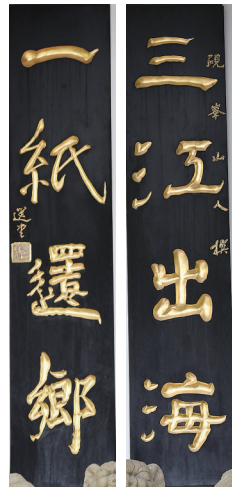 三江出海
硯峯山人撰
一紙還鄉
選堂